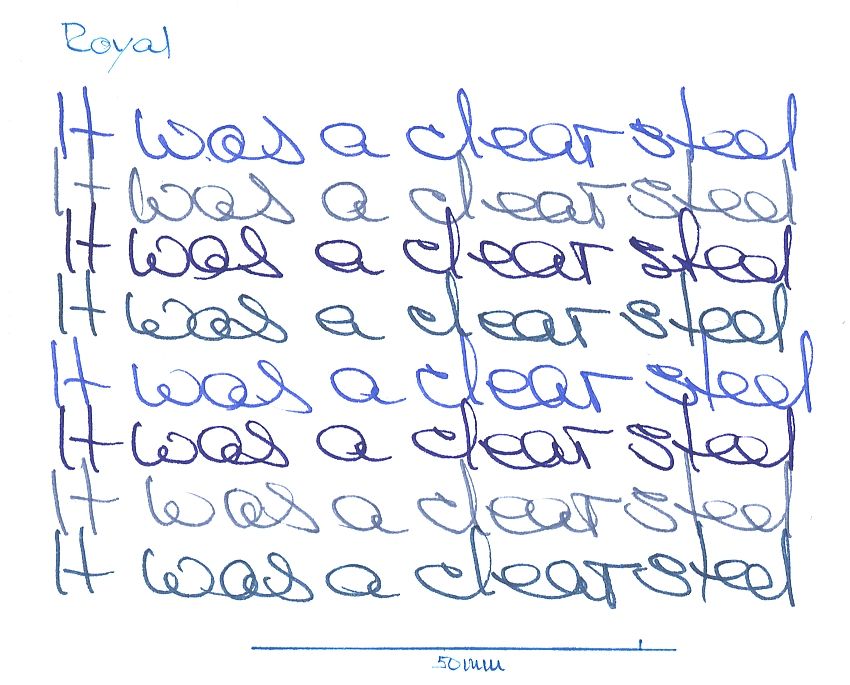 Royal
It was a clear steel
It was a clear steel
It was a clear steel
It was a clear steel
It was a clear steel
It was a clear steel
It was a clear steel
It was a clear steel
50mm